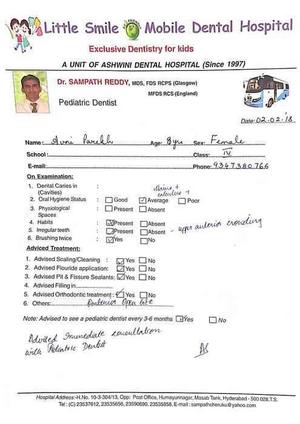 Little Smile Mobile Dental Hospital
Exclusive Dentistry for kids
A UNIT OF ASHWINI DENTAL HOSPITAL (Since 1997)
Dr. SAMPATH REDDY, MDS, FDS RCPS (Glasgow)
MFDS RCS (England)
Pediatric Dentist
Date: 02-02-18
Name: Avni Parekh Age: 8yrs Sex: Female
School: Class: IV
E-mail: Phone: 9347380766
On Examination:
1. Dental Caries in (Cavities) stains + calculus +
2. Oral Hygiene Status Good Average Poor
3. Physiological Spaces Present Absent
4. Habits Present Absent
5. Irregular teeth Present Absent - upper anterior crowding
6. Brushing twice Yes No
Adviced Treatment:
1. Advised Scaling/Cleaning : Yes No
2. Advised Flouride application: Yes No
3. Advised Pit & Fissure Sealants: Yes No
4. Advised Filling in
5. Advised Orthodontic treatment: Yes No
6. Others: Anterior Open bite
Note: Advised to see a pediatric dentist every 3-6 months Yes No
Advised Immediate consultation
with Pediatric Dentist
Hospital Address:-H.No. 10-3-304/13, Opp: Post Office, Humayunnagar, Masab Tank, Hyderabad - 500 028.T.S.
Tel: (C) 23537612, 23535656, 23590690, 23535858, E-mail: sampathcheruku@yahoo.com